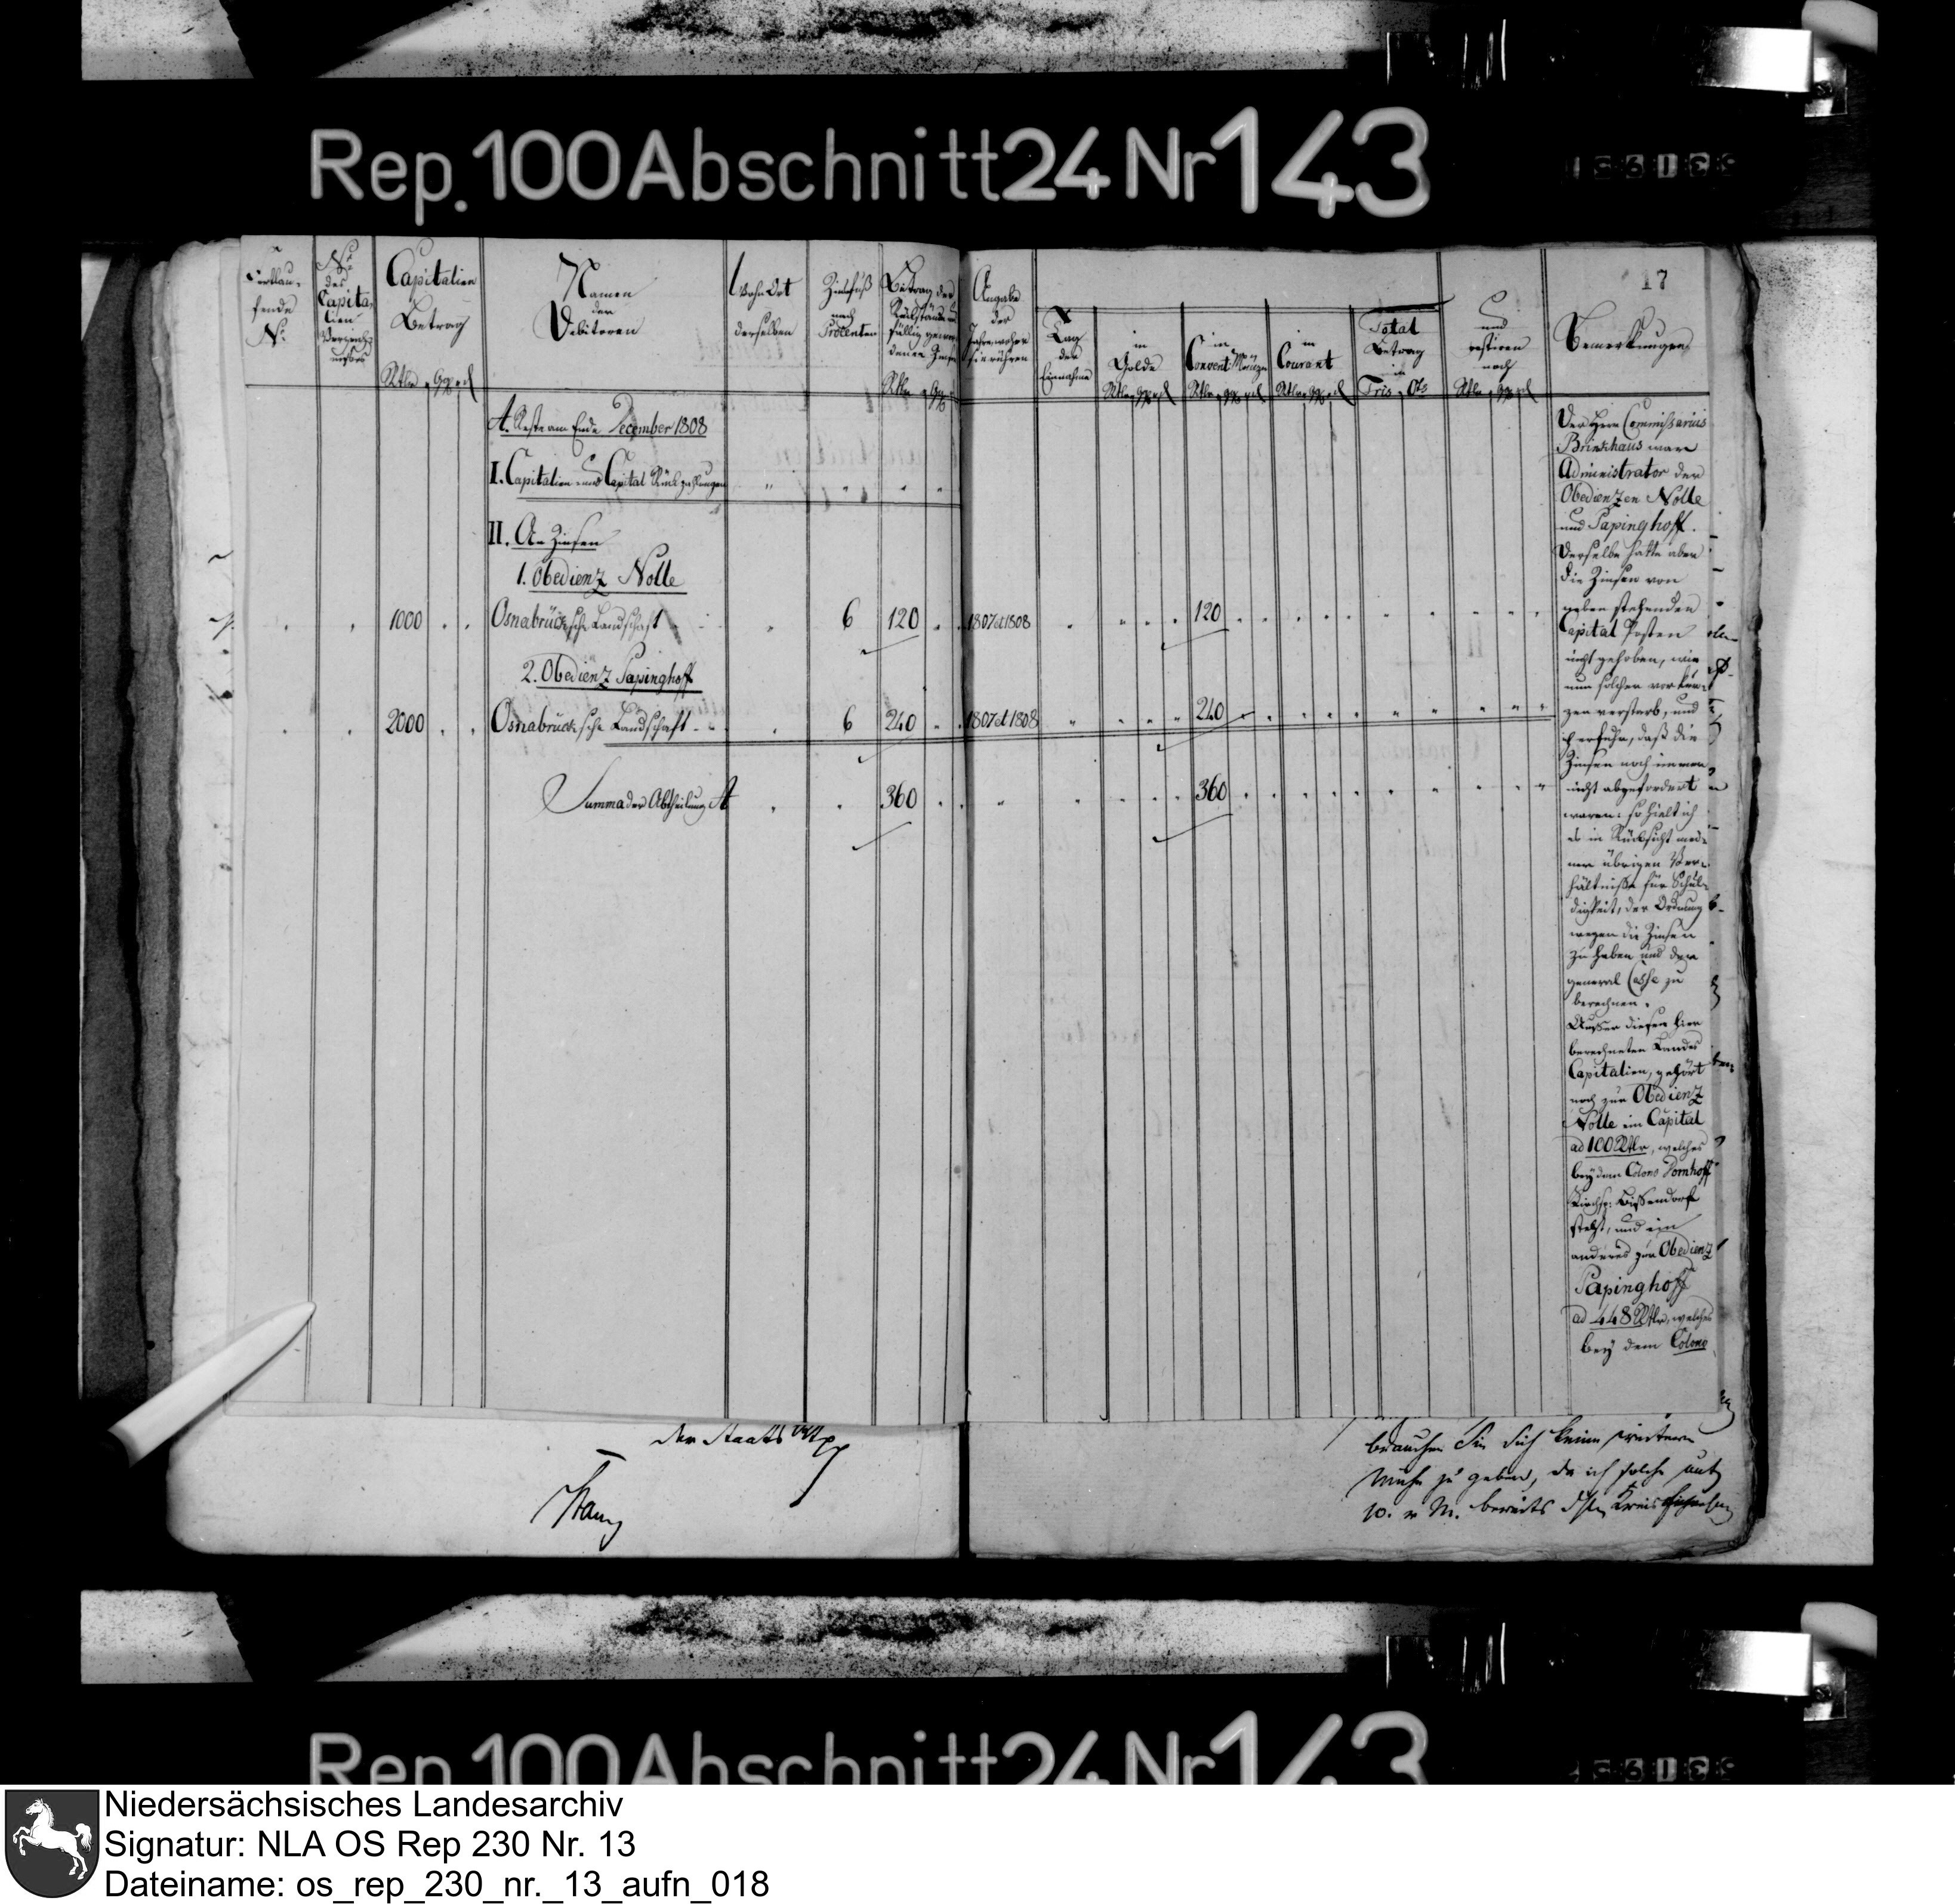 Rep. 100 Abschnitt 24 Nr 143
17
Fortlau-
fende
No.
No.
des
Capita-
lien
Verzeich-
nisses
Capitalien
Betrag
Rtlr ggr d
Namen
der
Debitoren
Wohn Ort
derselben
Zinsfuß
nach
Procenten
Betrag der
Rückstände u
fällig gewor-
denen Zinsen
Rtlr ggr
Angabe
der
Jahre, woher
sie rühren
Tag
der
Einnahme
in
Golde
Rtlr ggr d
in
Convent. Münze
Rtlr ggr d
in
Courant
Rtlr ggr d
Total
Betrag
in
Frcs Cts
Und
restiren
noch
Rtlr ggr d
Bemerkungen
A. Reste am Ende December 1808
I. Capitalien und Capital Rückzahlungen
II. An Zinsen
1. Obedienz Nolle
1000 Osnabrücksche Landschaft 6 120 1807 et 1808 120
2. Obedienz Papinghoff
2000 Osnabrücksche Landschaft 6 240 1807 et 1808 240
Summa der Abtheilung A 360 360
Der Herr Commissarius
Brinkhaus war
Administrator der
Obedienzen Nolle
und Papinghoff.
Derselbe hatte aber
die Zinsen von
neben stehenden
Capital Posten
nicht gehoben, wie
nun solcher vor kur-
zen verstarb, und
ich erfuhr, daß die
Zinsen noch immer
nicht abgefordert
waren: so hielt ich
es in Rücksicht mei-
ner übrigen Ver-
hältnisse für Schul-
digkeit, der Ordnung
wegen die Zinsen
zu heben und der
general Casse zu
berechnen.
Außer diesen hier
berechneten Landes
Capitalien, gehört
noch zur Obedienz
Nolle ein Capital
ad 100 Rtlr, welches
bey dem Colono Domhoff
Kirchsp: Bissendorf
steht, und ein
anderes zur Obedienz
Papinghoff
ad 448 Rtlr, welches
bey dem Colono
der Staats
brauchen Sie sich keine weitere
Mühe zu geben, da ich solche
10. v. M. bereits
Rep. 100 Abschnitt 24 Nr 143
Niedersächsisches Landesarchiv
Signatur: NLA OS Rep 230 Nr. 13
Dateiname: os_rep_230_nr._13_aufn_018